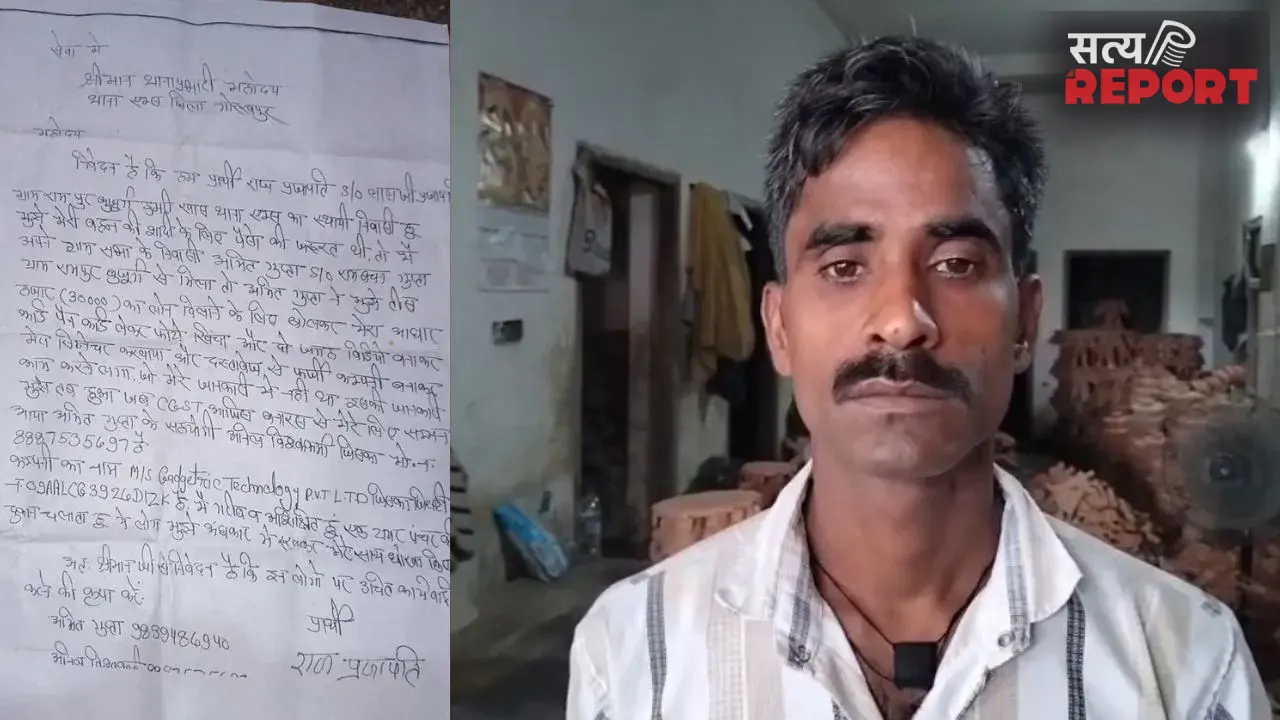 सेवा में
श्रीमान थानाप्रभारी महोदय
थाना एम्स जिला गोरखपुर
महोदय
निवेदन है कि हम प्रार्थी राज प्रजापति S/O लालजी प्रजापति
ग्राम रामपुर डुमरी खास थाना एम्स का स्थायी निवासी हूँ
मुझे मेरी बहन की शादी के लिए पैसा की जरूरत थी तो मैं
अपने ग्राम सभा के निवासी अमित गुप्ता S/O गुप्ता
ग्राम रामपुर से मिला तो अमित गुप्ता ने मुझे तीस
हजार (30000) का लोन दिलाने के लिए बोलकर मेरा आधार
कार्ड पैन कार्ड लेकर फोटो खिंचा और दो जगह विडियो बनाकर
मेरा सिग्नेचर करवाया और दस्तावेज से फर्जी कम्पनी बनाकर
काम करने लगा जो मेरे जानकारी में नहीं था इसकी जानकारी
मुझे तब हुआ जब CGST आफिस बनारस से मेरे लिए सम्मन
आया अमित गुप्ता के सहयोगी विश्वकर्मा जिसका मो. न.
8887535697 है
कम्पनी का नाम M/S Gadgetric Technology P.V.T L.T.D जिसका
09AALCG3926D1ZK है, मैं गरीब व अशिक्षित हूँ एक पंचर की
दुकान चलाता हूँ ये लोग मुझे अंधकार में रखकर मेरे साथ धोखा किए
अतः श्रीमान जी से निवेदन है कि इन लोगों पर उचित कार्यवाही
करने की कृपा करें.
अमित गुप्ता 9839486940
प्रार्थी
राज प्रजापति
सत्य
REPORT